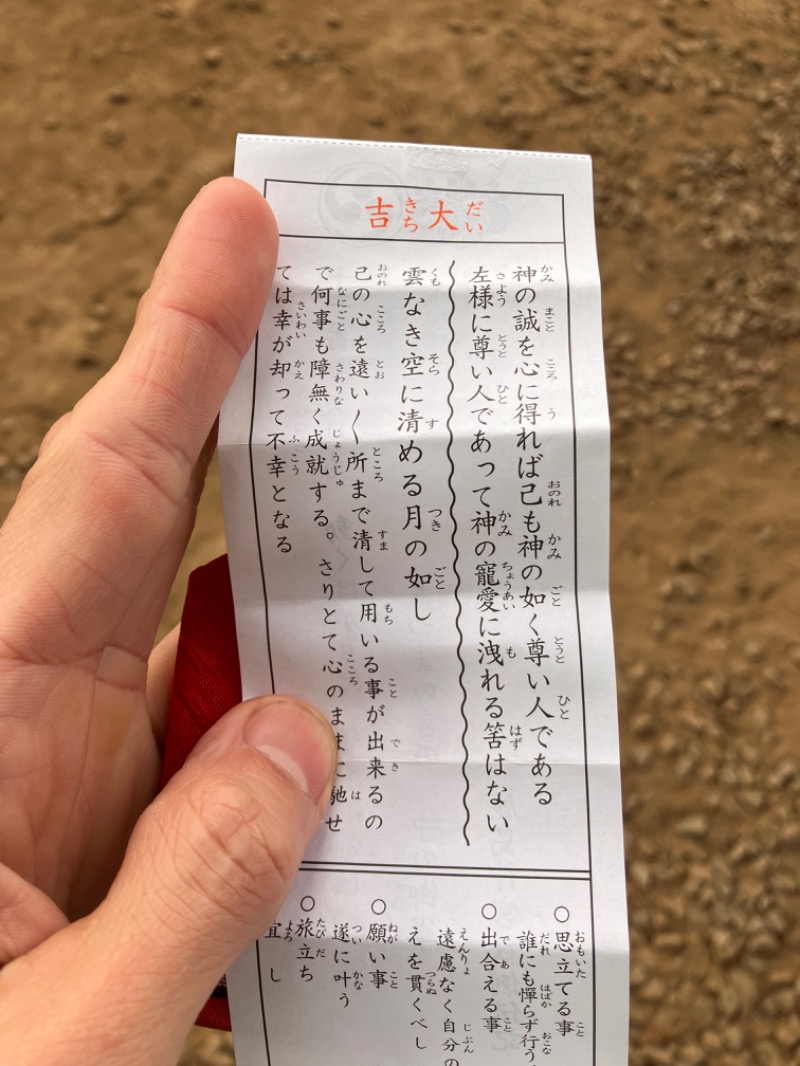 大吉
神の誠を心に得れば己も神の如く尊い人である
左様に尊い人であって神の寵愛に洩れる筈はない
雲なき空に清める月の如し
己の心を遠い〱所まで清して用いる事が出来るの
で何事も障無く成就する。さりとて心のままに馳せ
ては幸が却って不幸となる
○思立てる事
誰にも憚らず行う
○出合える事
遠慮なく自分の
えを貫くべし
○願い事
遂に叶う
○旅立ち
宜し